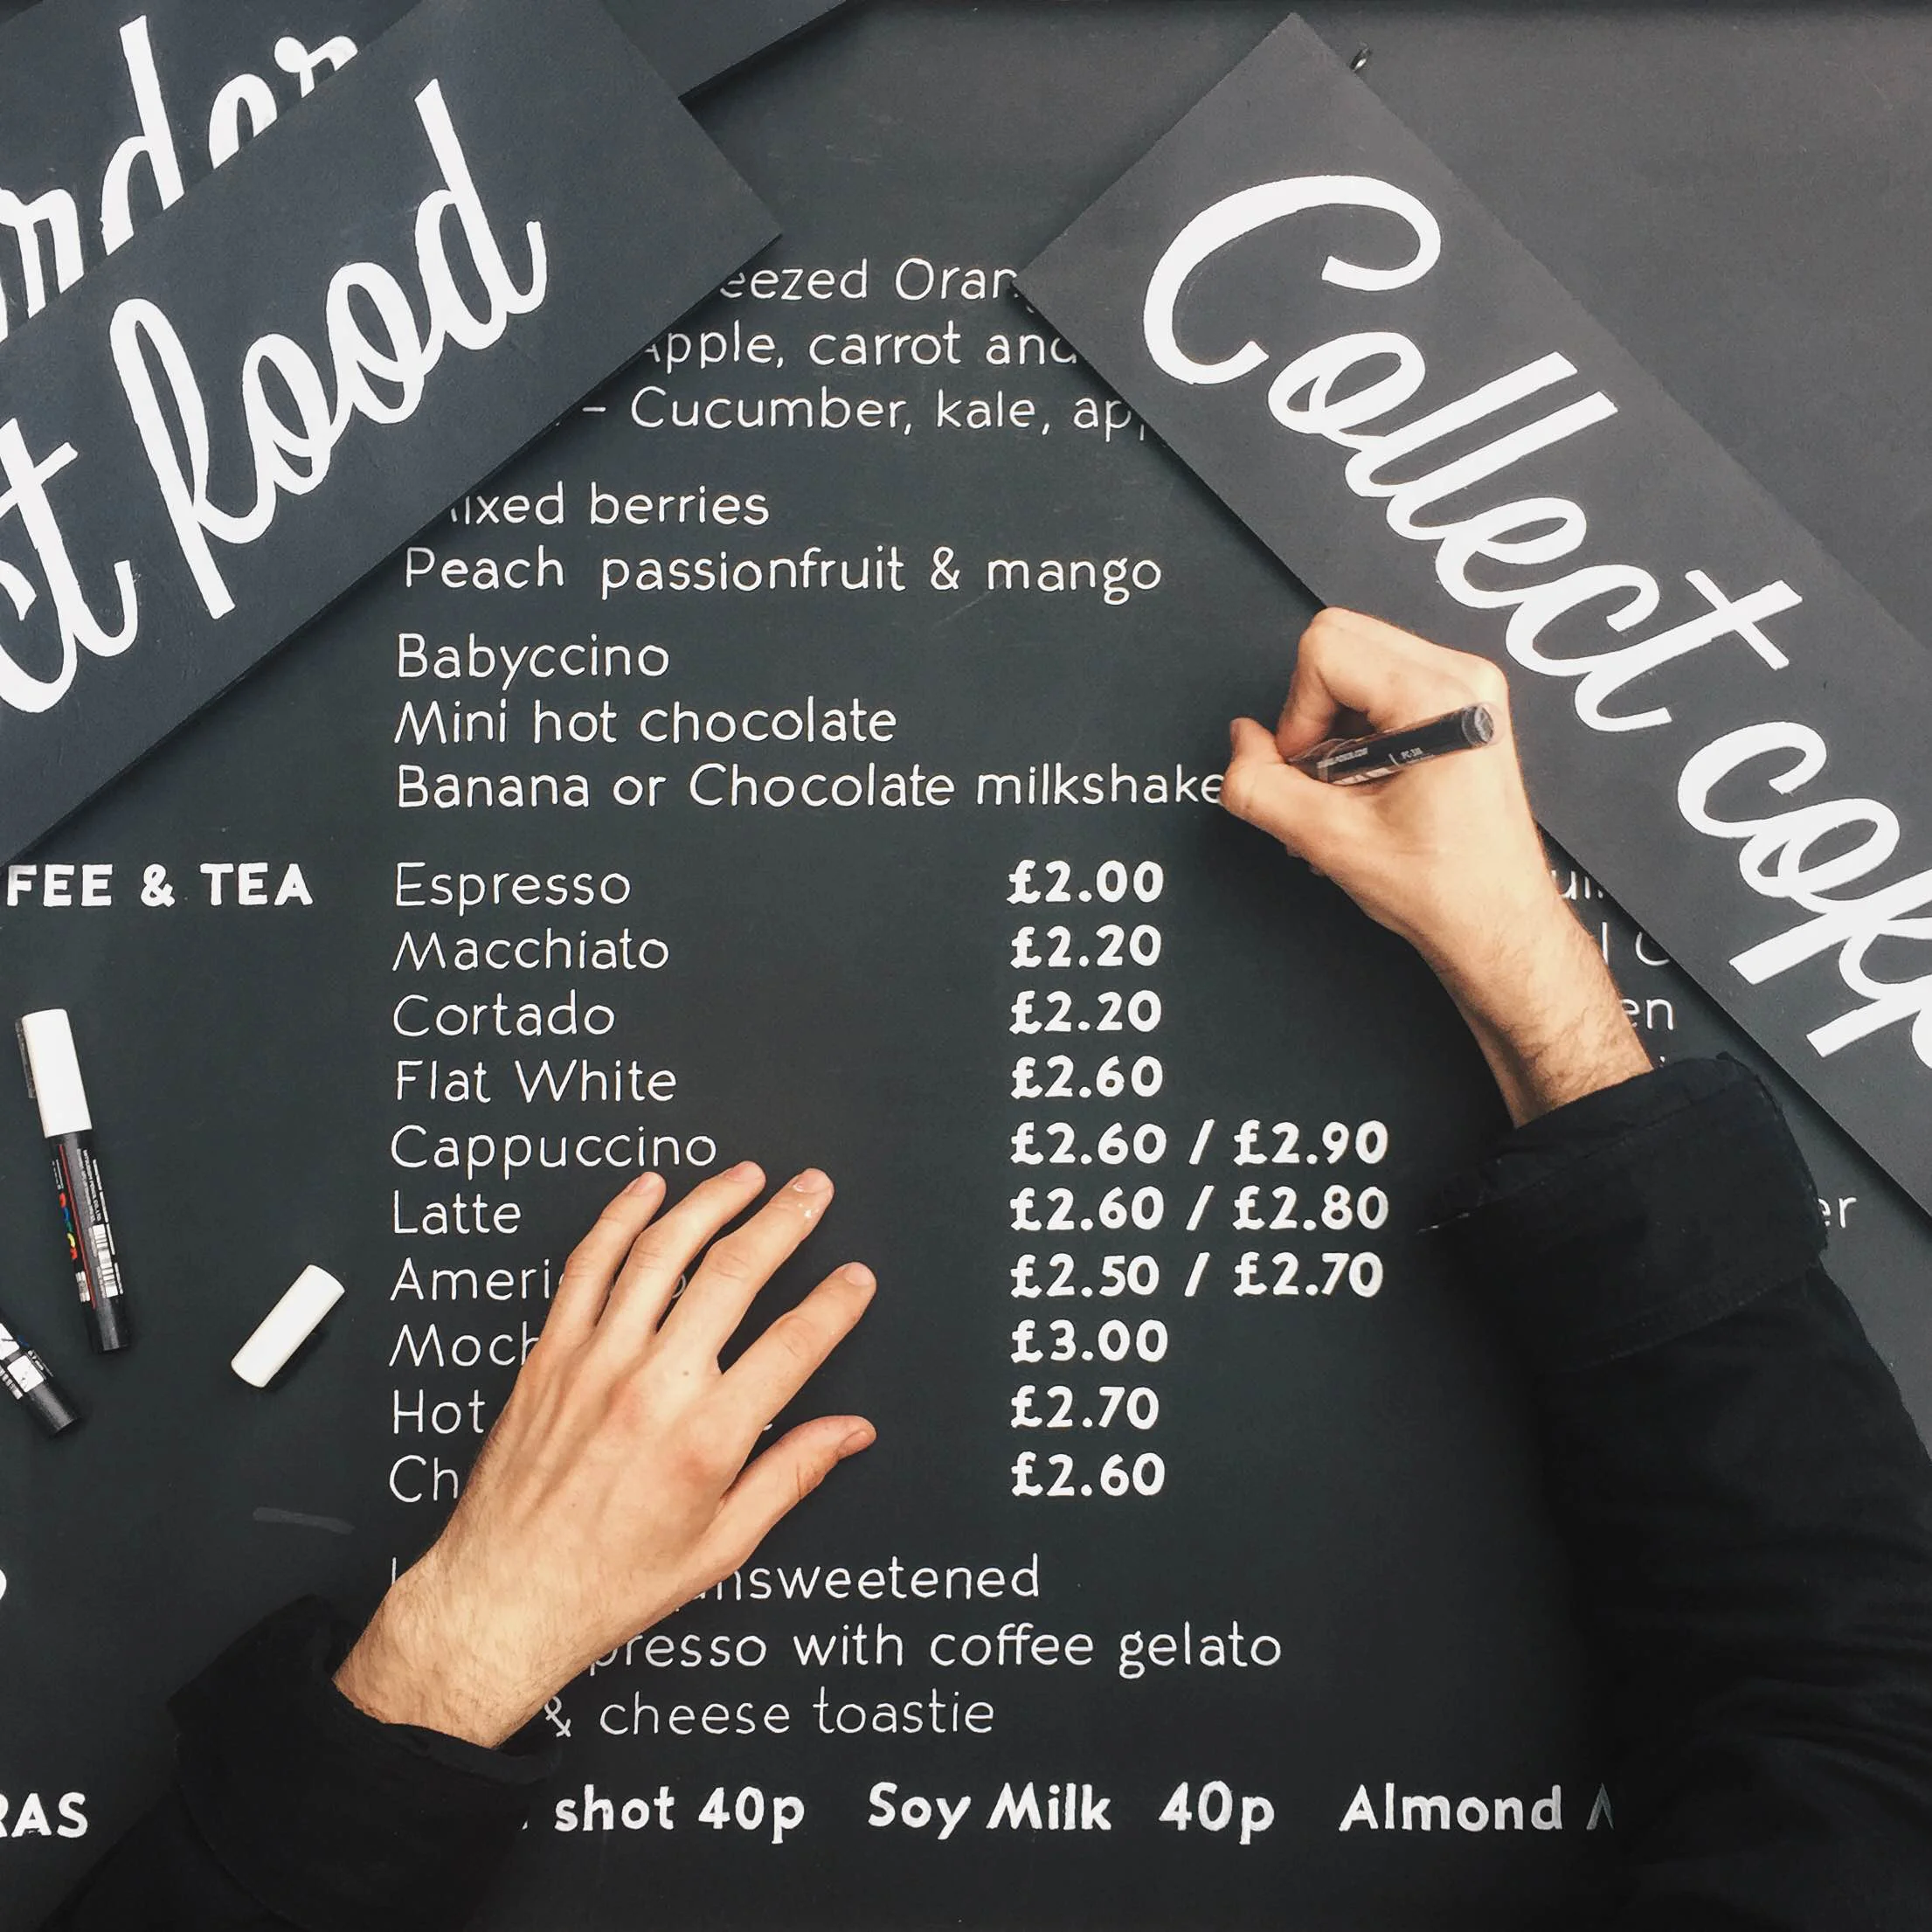 food
Collect
Oran
carrot and
– Cucumber, kale,
berries
Peach passionfruit & mango
Babyccino
Mini hot chocolate
Banana or Chocolate milkshake
FEE & TEA
Espresso £2.00
Macchiato £2.20
Cortado £2.20
Flat White £2.60
Cappuccino £2.60 / £2.90
Latte £2.60 / £2.80
Ameri £2.50 / £2.70
Moch £3.00
Hot £2.70
Ch £2.60
nsweetened
resso with coffee gelato
& cheese toastie
RAS shot 40p Soy Milk 40p Almond